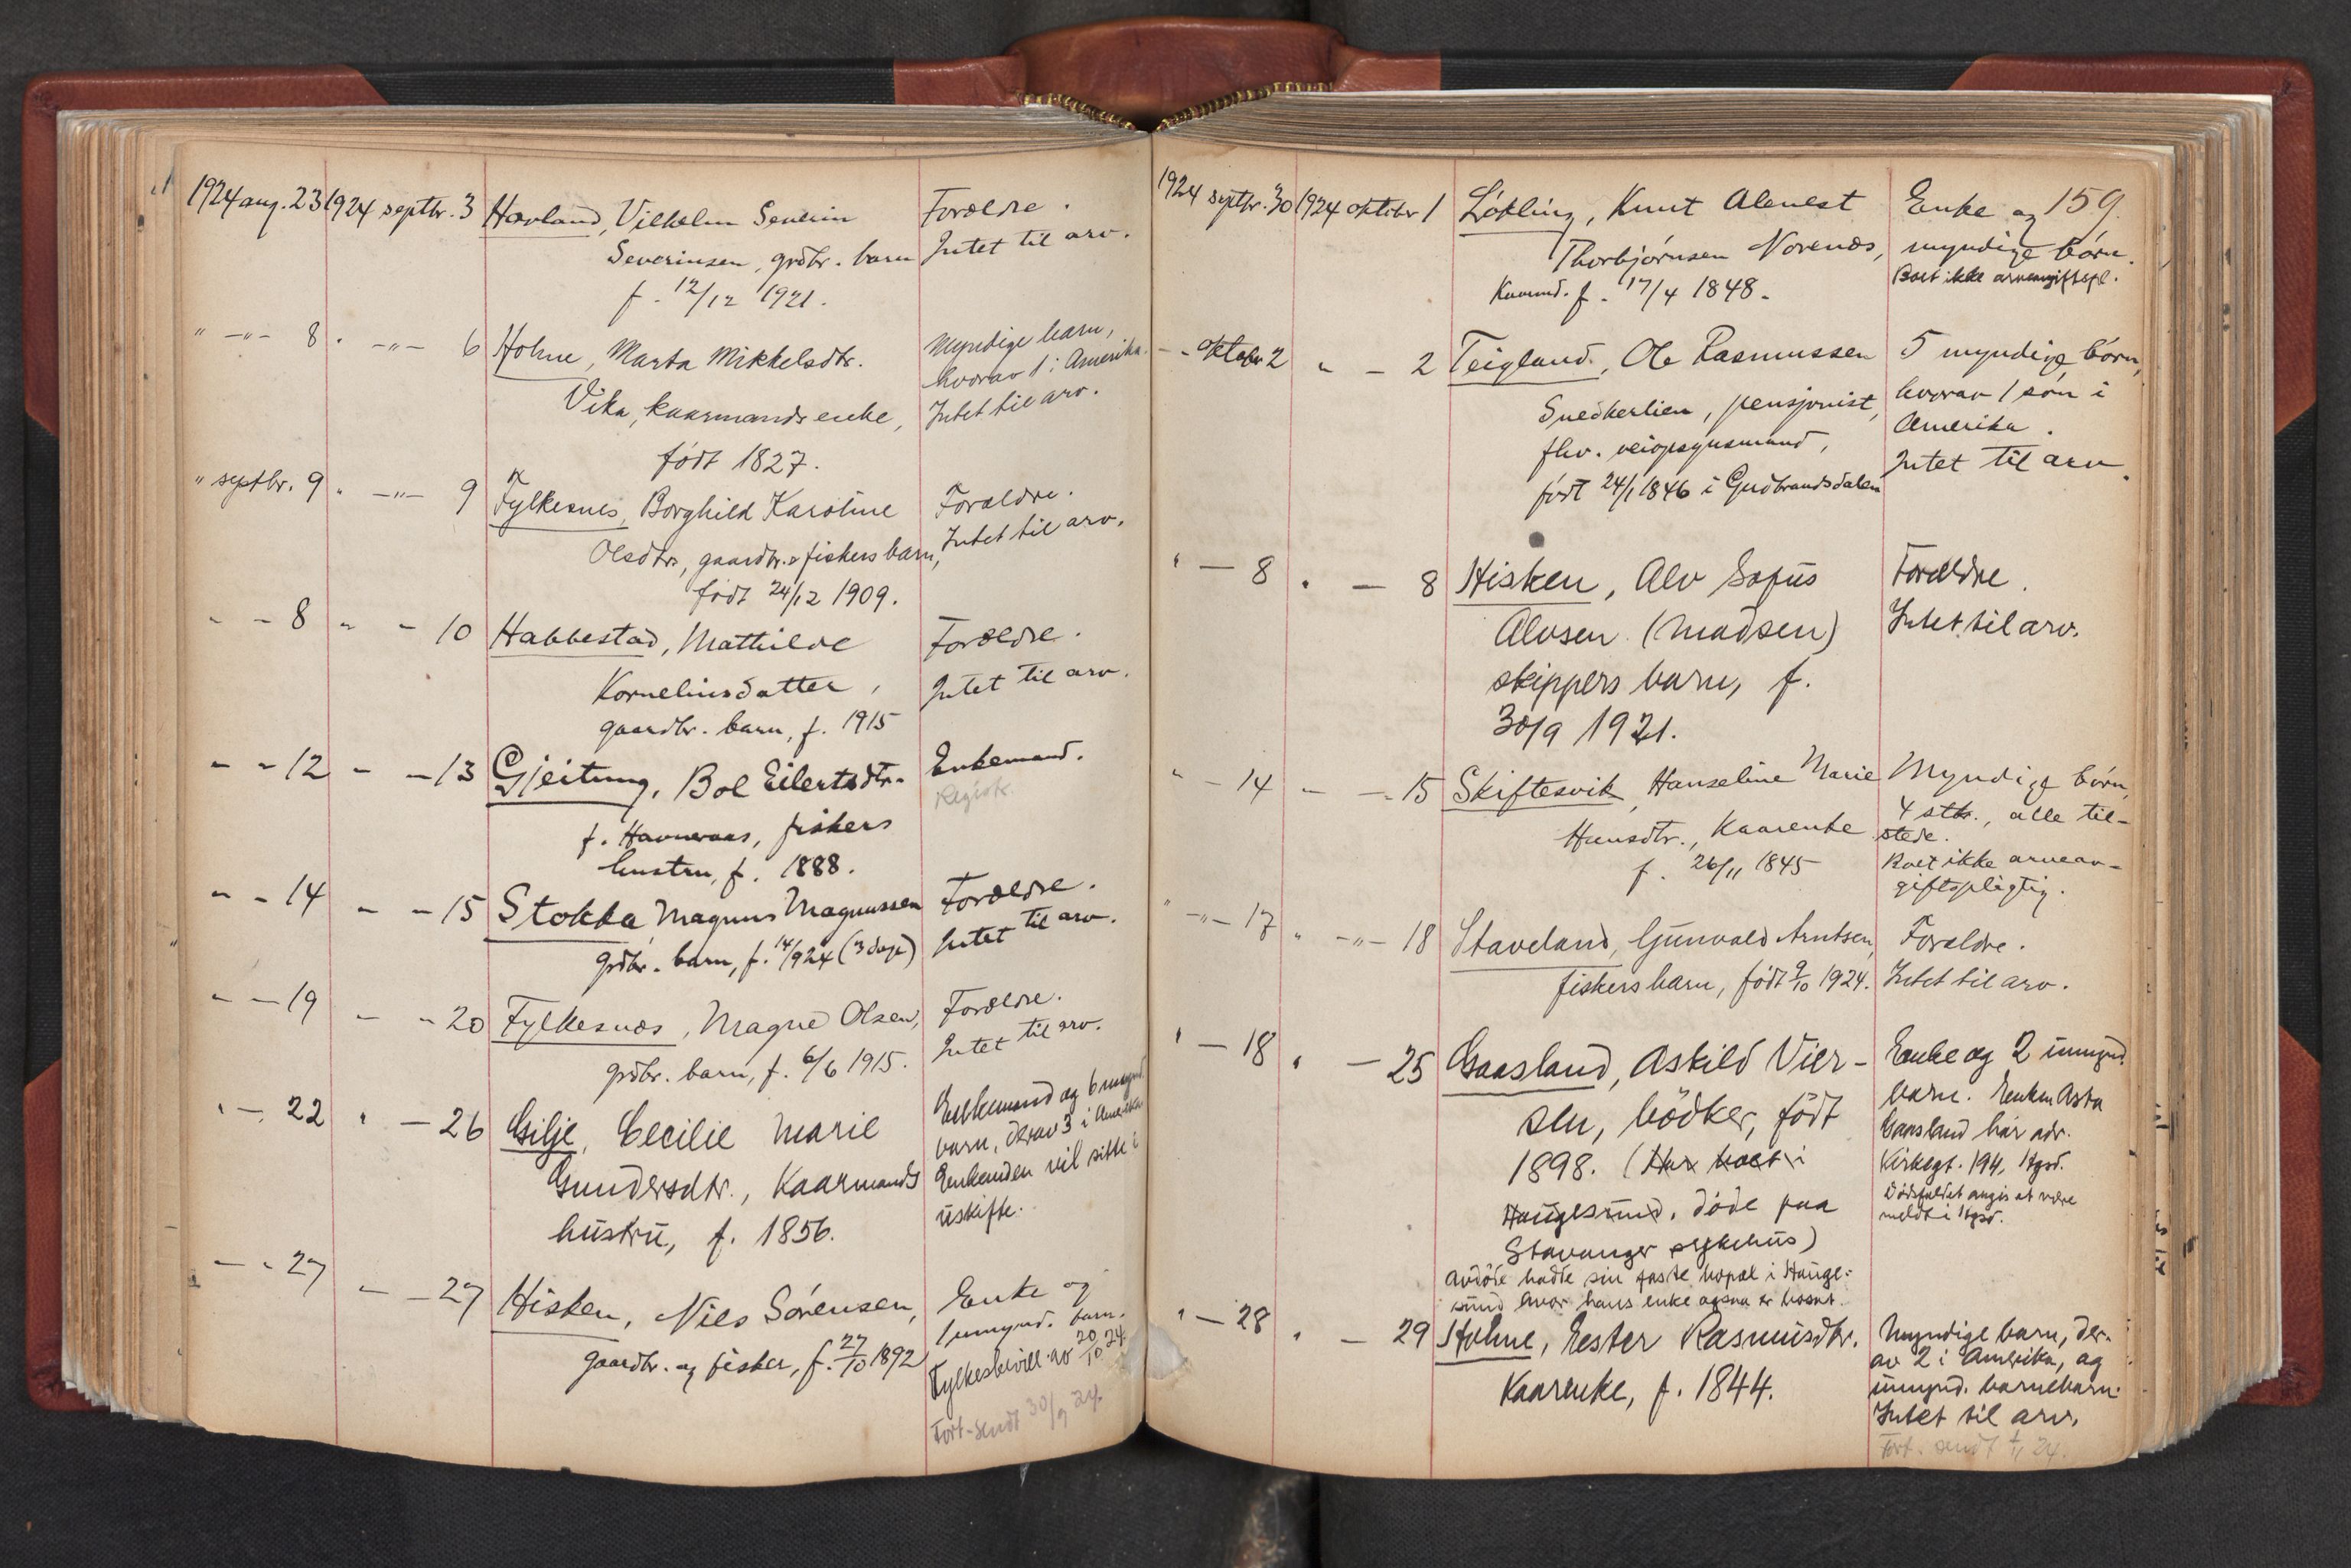 1924 aug. 23 1924 septbr. 3 Havland, Vilhelm Severin Forældre.
Severinsen, grdbr. barn Intet til arv.
f. 12/12 1921.
" -"- 8 . -"- 6 Hohne, Marta Mikkelsdtr. Myndige barn,
hvorav 1 i Amerika.
Vika, kaarmands enke, Intet til arv.
født 1827.
" septbr. 9 " -"- 9 Fylkesnes, Borghild Karoline Forældre.
Olsdtr, gaardbr. & fiskers barn, Intet til arv.
født 24/12 1909.
" - 8 " - 10 Habbestad, Mathilde Forældre.
Kornelinsdatter, Intet til arv.
gaardbr. barn, f. 1915
" - 12 " - 13 Gjeitung, Bol Eilertsdtr. Enkemand.
Registr.
f. Havneraas, fiskers
hustru, f. 1888.
" - 14 " - 15 Stokka Magnus Magnussen Forældre.
grdbr. barn, f. 14/9 24 (3 dage) Intet til arv.
" - 19 " - 20 Fylkesnes, Magne Olsen, Forældre.
grdbr. barn, f. 6/6 1915. Intet til arv.
" - 22 " - 26 Gilje, Cecilie Marie Enkemand og 6 mynd.
barn, derav 3 i Amerika
Gundersdtr., Kaarmands Enkemden vil sitte i
hustru, f. 1856. uskifte.
" - 27 " - 27 Hisken, Niels Sørensen, Enke og
1 umynd. barn.
gaardbr. og fisker, f. 27/10 1892 Fylkesbevill. av 20/10 24.
Fort. sendt 30/9 24.
159.
1924 septbr. 30 1924 oktober 1 Løkling, Knut Alenest Enke og
Thorbjørnsen Norenes, myndige børn.
Kaarmd. f. 17/4 1848. Boet ikke arveavgiftspl.
" oktober 2 " - 2 Teigland, Ole Rasmussen 5 myndige børn,
Snedkerlien, pensjonist, hvorav 1 søn i
fhv. veiopsynsmand, Amerika.
født 24/1 1846 i Gudbrandsdalen Intet til arv.
" - 8 " - 8 Hisken, Alv Sofus Forældre.
Alvsen (Madsen) Intet til arv.
skippers barn, f.
30/9 1921.
" - 14 " - 15 Skiftesvik, Hanseline Marie Myndige børn,
Hansdtr., Kaarenke 4 stk., alle til-
stede.
f. 26/11 1845 Boet ikke arveav-
giftspligtig.
" -"- 17 " -"- 18 Staveland, Gunvald Arntsen, Forældre.
fiskers barn, født 9/10 1924. Intet til arv.
" - 18 " - 25 Gaasland, Askild Vier- Enke og 2 umynd.
sen, bødker, født barn. Enken Asta
Gaasland har adr.
1898. (Har boet i Kirkegt. 194, Hgsd.
Haugesund, døde paa Dødsfaldet angis at være
meldt i Hgsd.
Stavanger sykehus)
Avdøde hadde sin faste bopæl i Hauge-
sund hvor hans enke ogsaa er bosat.
" - 28 " - 29 Hohne, Ester Rasmusdtr. Myndige barn, der-
av 2 i Amerika, og
Kaarenke, f. 1844. umynd. barnebarn.
Intet til arv.
Fort. sendt 1/11 24.